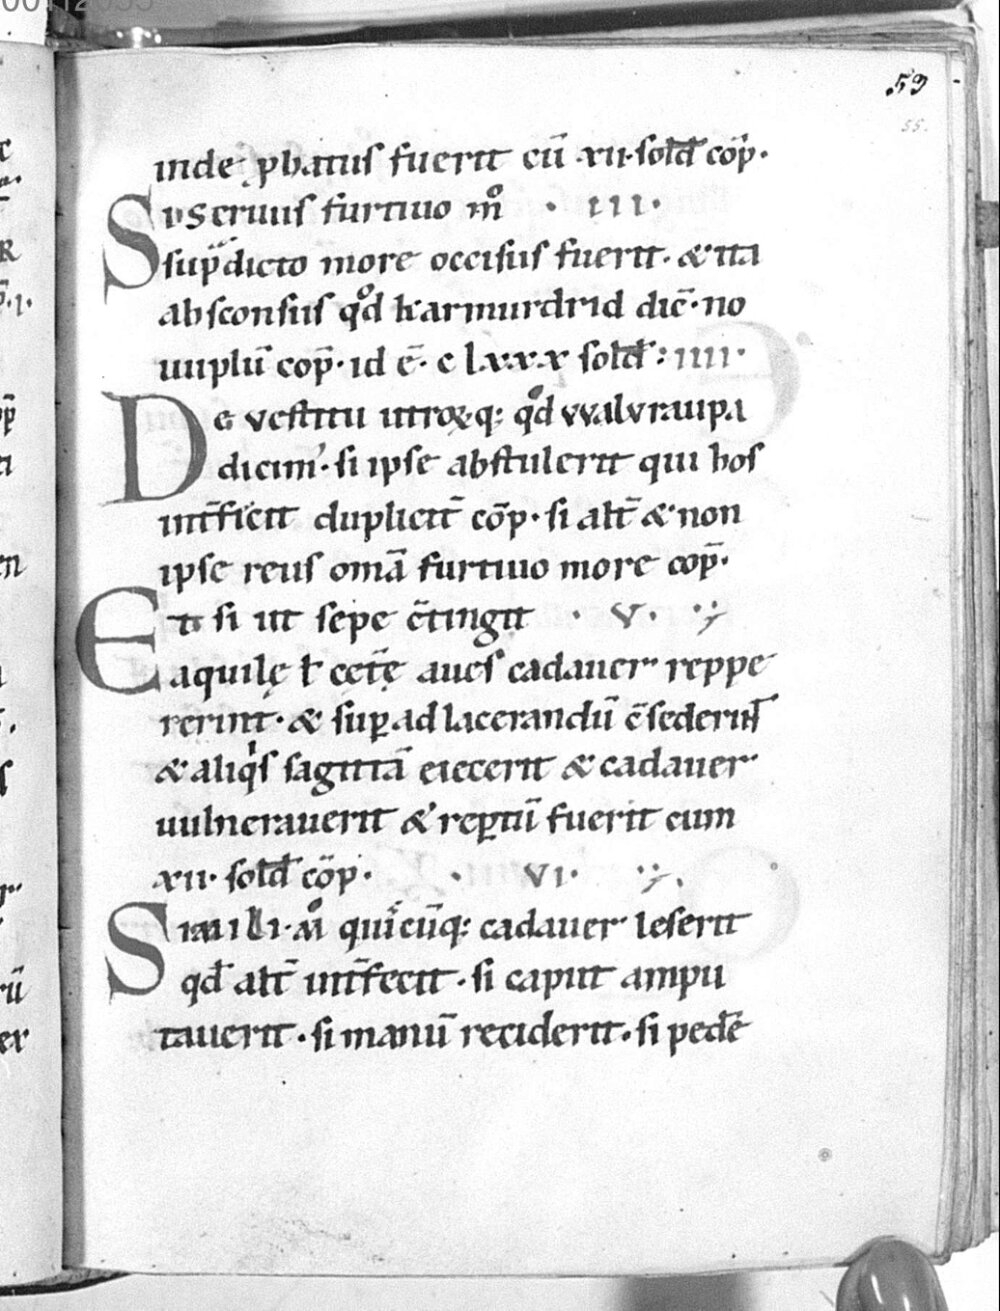 00112055
53
55.
inde ꝓbatus fuerit cū ·xii· sold̄ cōp̄·
Si vs eruus furtiuo mͦ · iii·
sup̄dicto more occisus fuerit· & ita
absconsus qͦd kamurdrid dic̄· no
uuplū cop̄· id ē· c lxxx sold̄: iiii·
De vestitu utroꝝq; qͦd vvalvraupa
dicim᾽· si ipse abstulerit qui hos
int̄ficit duplicit̄ cōp· si alt̄ & non
ipse reus om̄ia furtiuo more cop̄·
Et si ut sepe c̄tingit · v·
aquilę ł cetę̄ aues cadauer reppe
rerint· & suꝑ ad lacerandū c̄sederint
& aliqͥs sagittā eiecerit & cadauer
uulnerauerit & reꝑtū fuerit cum
xii· sold̄ cōp· · vi·
Simili· mͦ quicūq; cadauer leserit
qd̄ alt̄ int̄fecit· si caput ampu
tauerit· si manū reciderit· si pedē